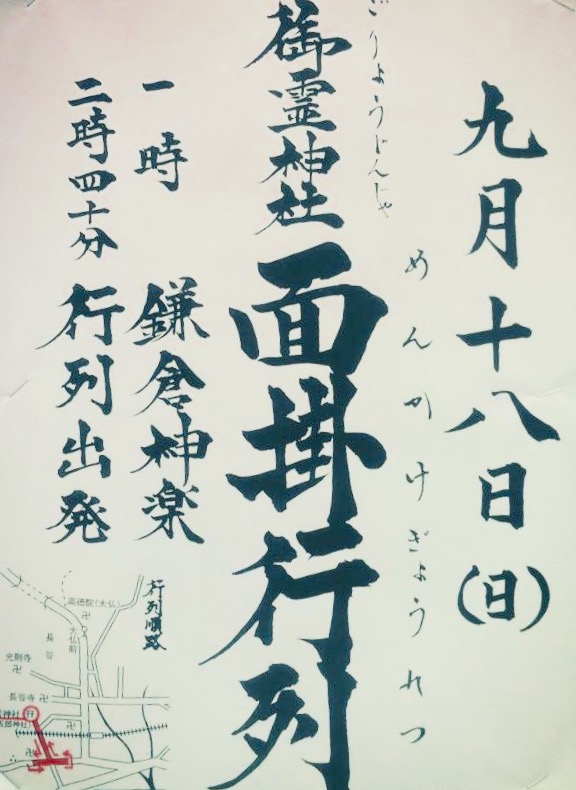 九月十八日(日)
めんかけぎょうれつ
ごりょうじんじゃ
御霊神社 面掛行列
一時 鎌倉神楽
二時四十分 行列出発
行列順路
高徳院(大仏)
大仏前
長谷
光則寺
長谷寺
神社